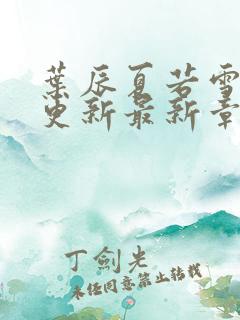 葉辰夏若雪
更新最新章
丁劍光
未经同意禁止转载